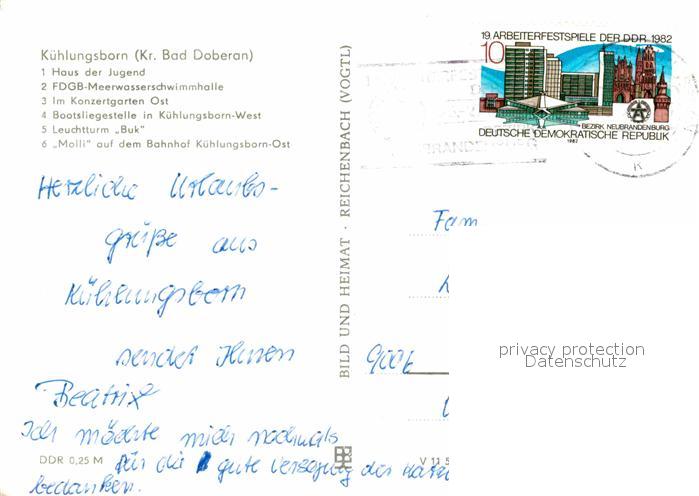 Kühlungsborn (Kr. Bad Doberan)
1 Haus der Jugend
2 FDGB-Meerwasserschwimmhalle
3 Im Konzertgarten Ost
4 Bootsliegestelle in Kühlungsborn-West
5 Leuchtturm „Buk"
6 „Molli" auf dem Bahnhof Kühlungsborn-Ost
Herzliche Urlaubs-
grüße aus
Kühlungsborn
sendet Ihnen
Beatrix
Ich möchte mich nochmals
für die gute Versorgung der
bedanken.
DDR 0,25 M
BILD UND HEIMAT · REICHENBACH (VOGTL)
V 11 5
19. ARBEITERFESTSPIELE DER DDR 1982
10
BEZIRK NEUBRANDENBURG
DEUTSCHE DEMOKRATISCHE REPUBLIK
1982
K
Fam
privacy protection
Datenschutz